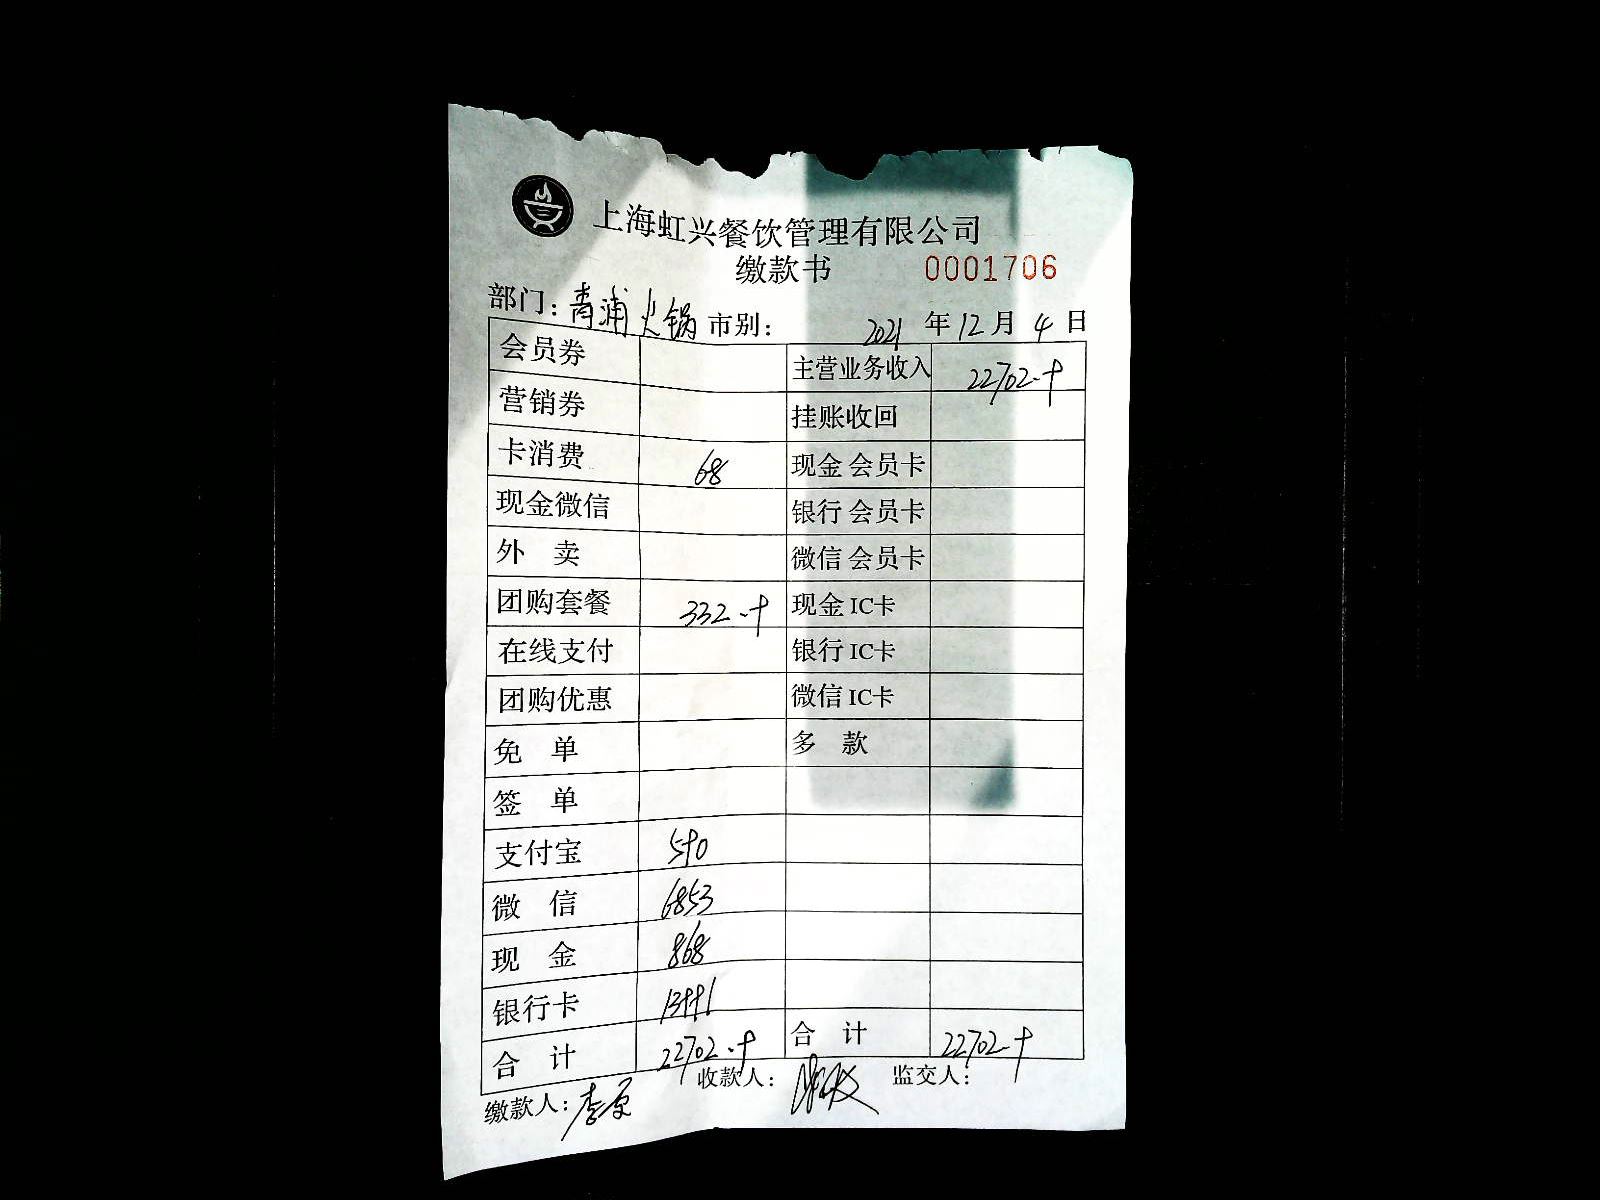 上海虹兴餐饮管理有限公司
缴款书 0001706
部门：青浦火锅 市别： 2021 年 12 月 4 日
会员券 主营业务收入 22702.9
营销券 挂账收回
卡消费 68 现金 会员卡
现金微信 银行 会员卡
外 卖 微信 会员卡
团购套餐 332.9 现金 IC卡
在线支付 银行 IC卡
团购优惠 微信 IC卡
免 单 多 款
签 单
支付宝 590
微 信 6853
现 金 868
银行卡 13991
合 计 22702.9 合 计 22702.9
缴款人：李原 收款人： 监交人：